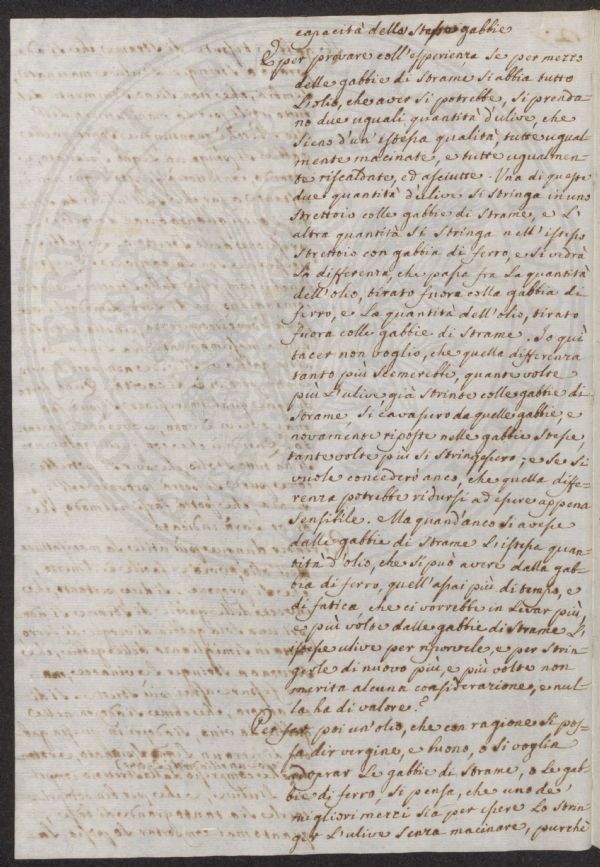 capacità delle stesse gabbie
E per provare coll'esperienza se per mezzo
delle gabbie di strame si abbia tutto
L'olio, che aver si potrebbe, si prenda-
no due uguali quantità d'ulive, che
sieno d'un'istessa qualità, tutte ugual-
mente macinate, e tutte ugualmen-
te riscaldate, ed asciutte. Una di queste
due quantità d'ulive si stringa in uno
strettoio colle gabbie di strame, e L'
altra quantità si stringa nell'istesso
strettoio con gabbia di ferro, e si vedrà
La differenza, che passa fra La quantità
dell'olio, tirato fuora colla gabbia di
ferro, e La quantità dell'olio, tirato
fuora colle gabbie di strame. Io qui
tacer non voglio, che quella differenza
tanto più scemerebbe, quante volte
più L'ulive già strinte colle gabbie di
strame si cavassero da quelle gabbie, e
novamente riposte nelle gabbie stesse
tante volte più si stringessero; e se si
vuole concederò anco, che quella diffe-
renza potrebbe ridursi ad essere appena
sensibile. Ma quand'anco si avesse
dalle gabbie di strame L'istessa quan-
tità d'olio, che si può avere dalla gab-
bia di ferro, quell'assai più di tempo, e
di fatica che ci vorrebbe in Levar più,
e più volte dalle gabbie di strame L'
istesse ulive per riporvele, e per strin-
gerle di nuovo più, e più volte non
merita alcuna considerazione, e nul-
la ha di valore?
Per far poi un'olio, che con ragione si pos-
sa dir vergine, e buono, o si voglia
adoprar Le gabbie di strame, o Le gab-
bie di ferro, si pensa, che uno de'
migliori mezzi sia per essere Lo strin-
ger L'ulive senza macinare, purchè